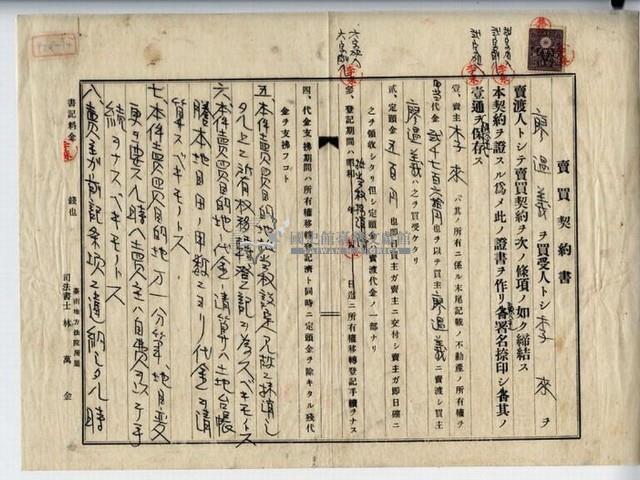 賣買契約書
廖過義ヲ買受人トシ李來ヲ
賣渡人トシテ賣買契約ヲ次ノ條項ノ如ク締結ス
本契約ヲ證スル爲メ此ノ證書ヲ作リ各署名捺印シ各其ノ
壹通ヲ保存ス
壹、賣主李來ハ其ノ所有ニ係ル末尾記載ノ不動產ノ所有權ヲ
代金貳千七百六拾円也ヲ以テ買主廖過義ニ賣渡シ買主
廖過義ハ之ヲ買受ケタリ
貳、定頭金五百円也即日買主ガ賣主ニ交付シ賣主ガ即日確ニ
之ヲ領收シタリ但シ定頭金ハ賣渡代金ノ一部ナリ
參、登記期間ハ昭和 年 月 日迄ニ所有權移轉登記手續ヲナス
四、代金支拂期間ハ所有權移轉登記濟ト同時ニ定頭金ヲ除キタル殘代
金ヲ支拂フコト
五、本件賣買目的地
タル上ニ所有權移轉登記ヲ為スベキモノトス
六、本件賣買目的地ノ代金ノ清算ハ土地台帳
謄本地目田ノ甲數ニヨリ代金ヲ清
算スベキモノトス
七、本件賣買目的地万一分筆、地目変
更ヲ要スル時ハ賣主ハ自費ヲ以テ手
続ヲナスベキモノトス
八、賣主ガ前記条項ニ違約シタル時
書記料金 錢也
臺南地方法院所屬
司法書士 林萬金
國史館臺灣文獻館